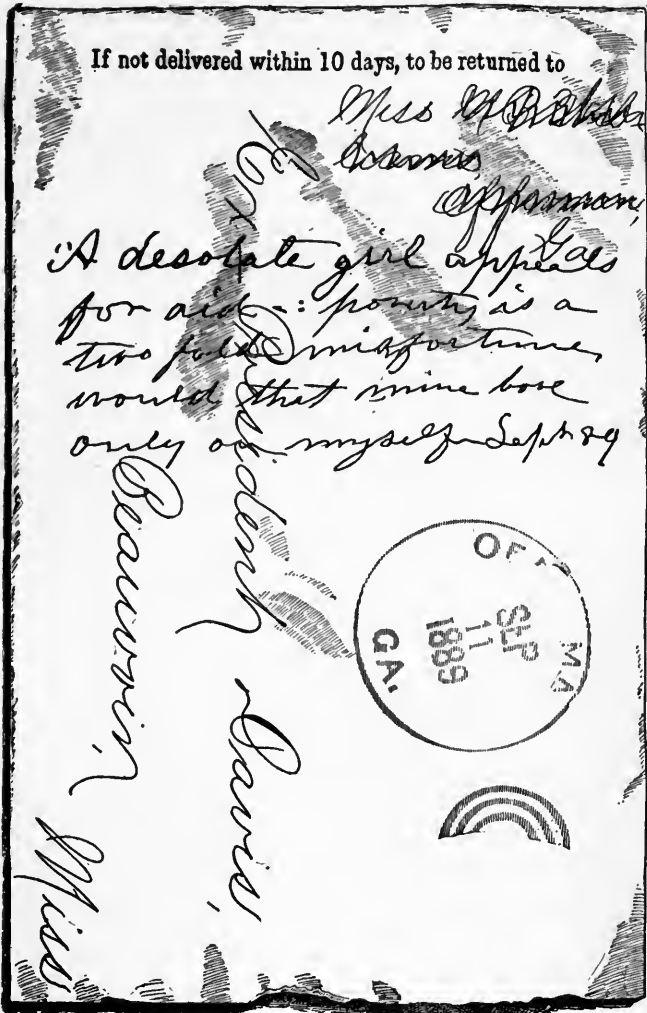 If not delivered within 10 days, to be returned to
Miss
Offerman,
Ga
"A desolate girl appeals
for aid -: poverty is a
two fold misfortune,
would that mine bore
only on myself Sept 89
Ex President Davis,
Beauvoir,
Miss
OF MA
SEP
11
1889
GA.